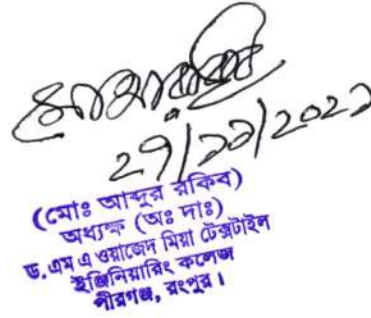 ২৭/১১/২০২১
(মোঃ আব্দুর রকিব)
অধ্যক্ষ (অঃ দাঃ)
ড. এম এ ওয়াজেদ মিয়া টেক্সটাইল
ইঞ্জিনিয়ারিং কলেজ
পীরগঞ্জ, রংপুর।